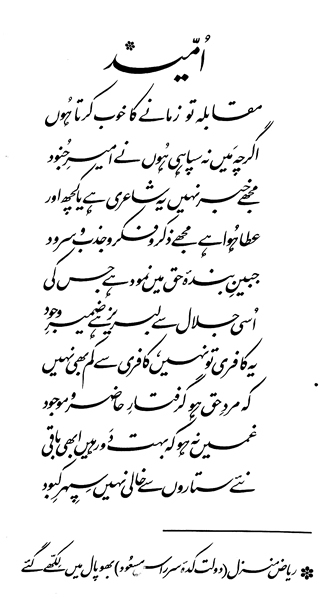 اُمّید*
مقابلہ تو زمانے کا خوب کرتا ہُوں
اگرچہ مَیں نہ سپاہی ہُوں نے امیرِ جُنود
مجھے خبر نہیں یہ شاعری ہے یا کچھ اور
عطا ہُوا ہے مجھے ذکر و فکر و جذب و سرود
جبینِ بندۂ حق میں نمود ہے جس کی
اُسی جلال سے لبریز ہے ضمیرِ وجود
یہ کافری تو نہیں، کافری سے کم بھی نہیں
کہ مردِ حق ہو گرفتارِ حاضر و موجود
غمیں نہ ہو کہ بہت دَور ہیں ابھی باقی
نئے ستاروں سے خالی نہیں سپہرِ کبود
* ریاض منزل (دولت کدۂ سر راس مسعود) بھوپال میں لکھے گئے